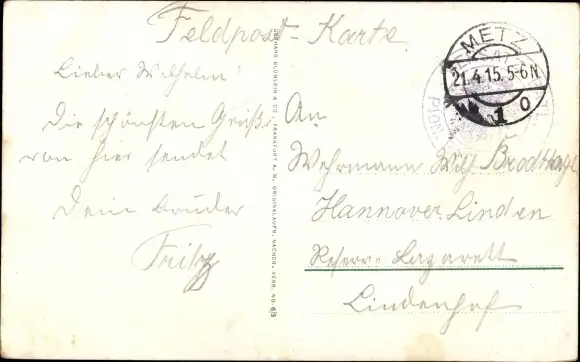 Feldpost-Karte
Lieber Wilhelm!
Die schönsten Grüße
von hier sendet
Dein Bruder
Fritz
GEBHARD BLÜMLEIN & CO., FRANKFURT A. M. ORIGINALAUFN. NACHDR. VERB. NO.
METZ
21.4.15. 5-6N.
1 o
An
Wehrmann Wilh.
Hannover. Linden
Reserve-Lazarett
Lindenhof